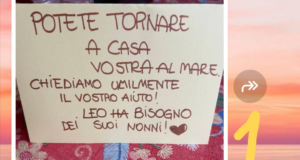 POTETE TORNARE
A CASA
VOSTRA AL MARE
CHIEDIAMO UMILMENTE
IL VOSTRO AIUTO!
LEO HA BISOGNO
DEI SUOI NONNI!
1